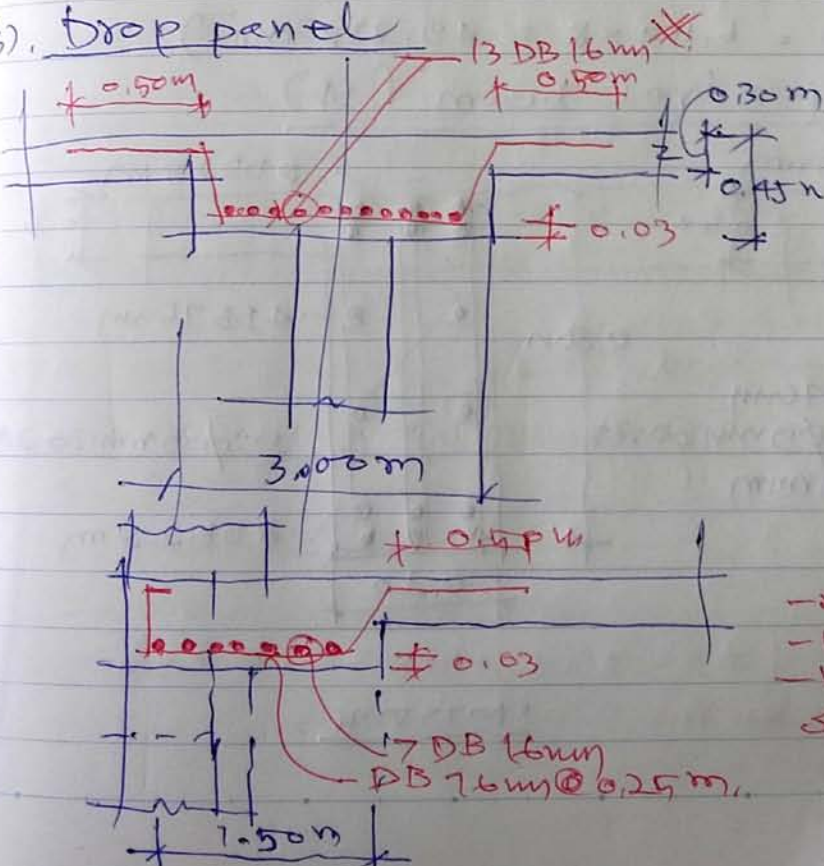 3). Drop panel
13 DB 16mm
0.50m
0.50m
0.30m
0.45m
0.03
3.00m
0.03
7 DB 16mm
DB 16mm @ 0.25m.
1.50m